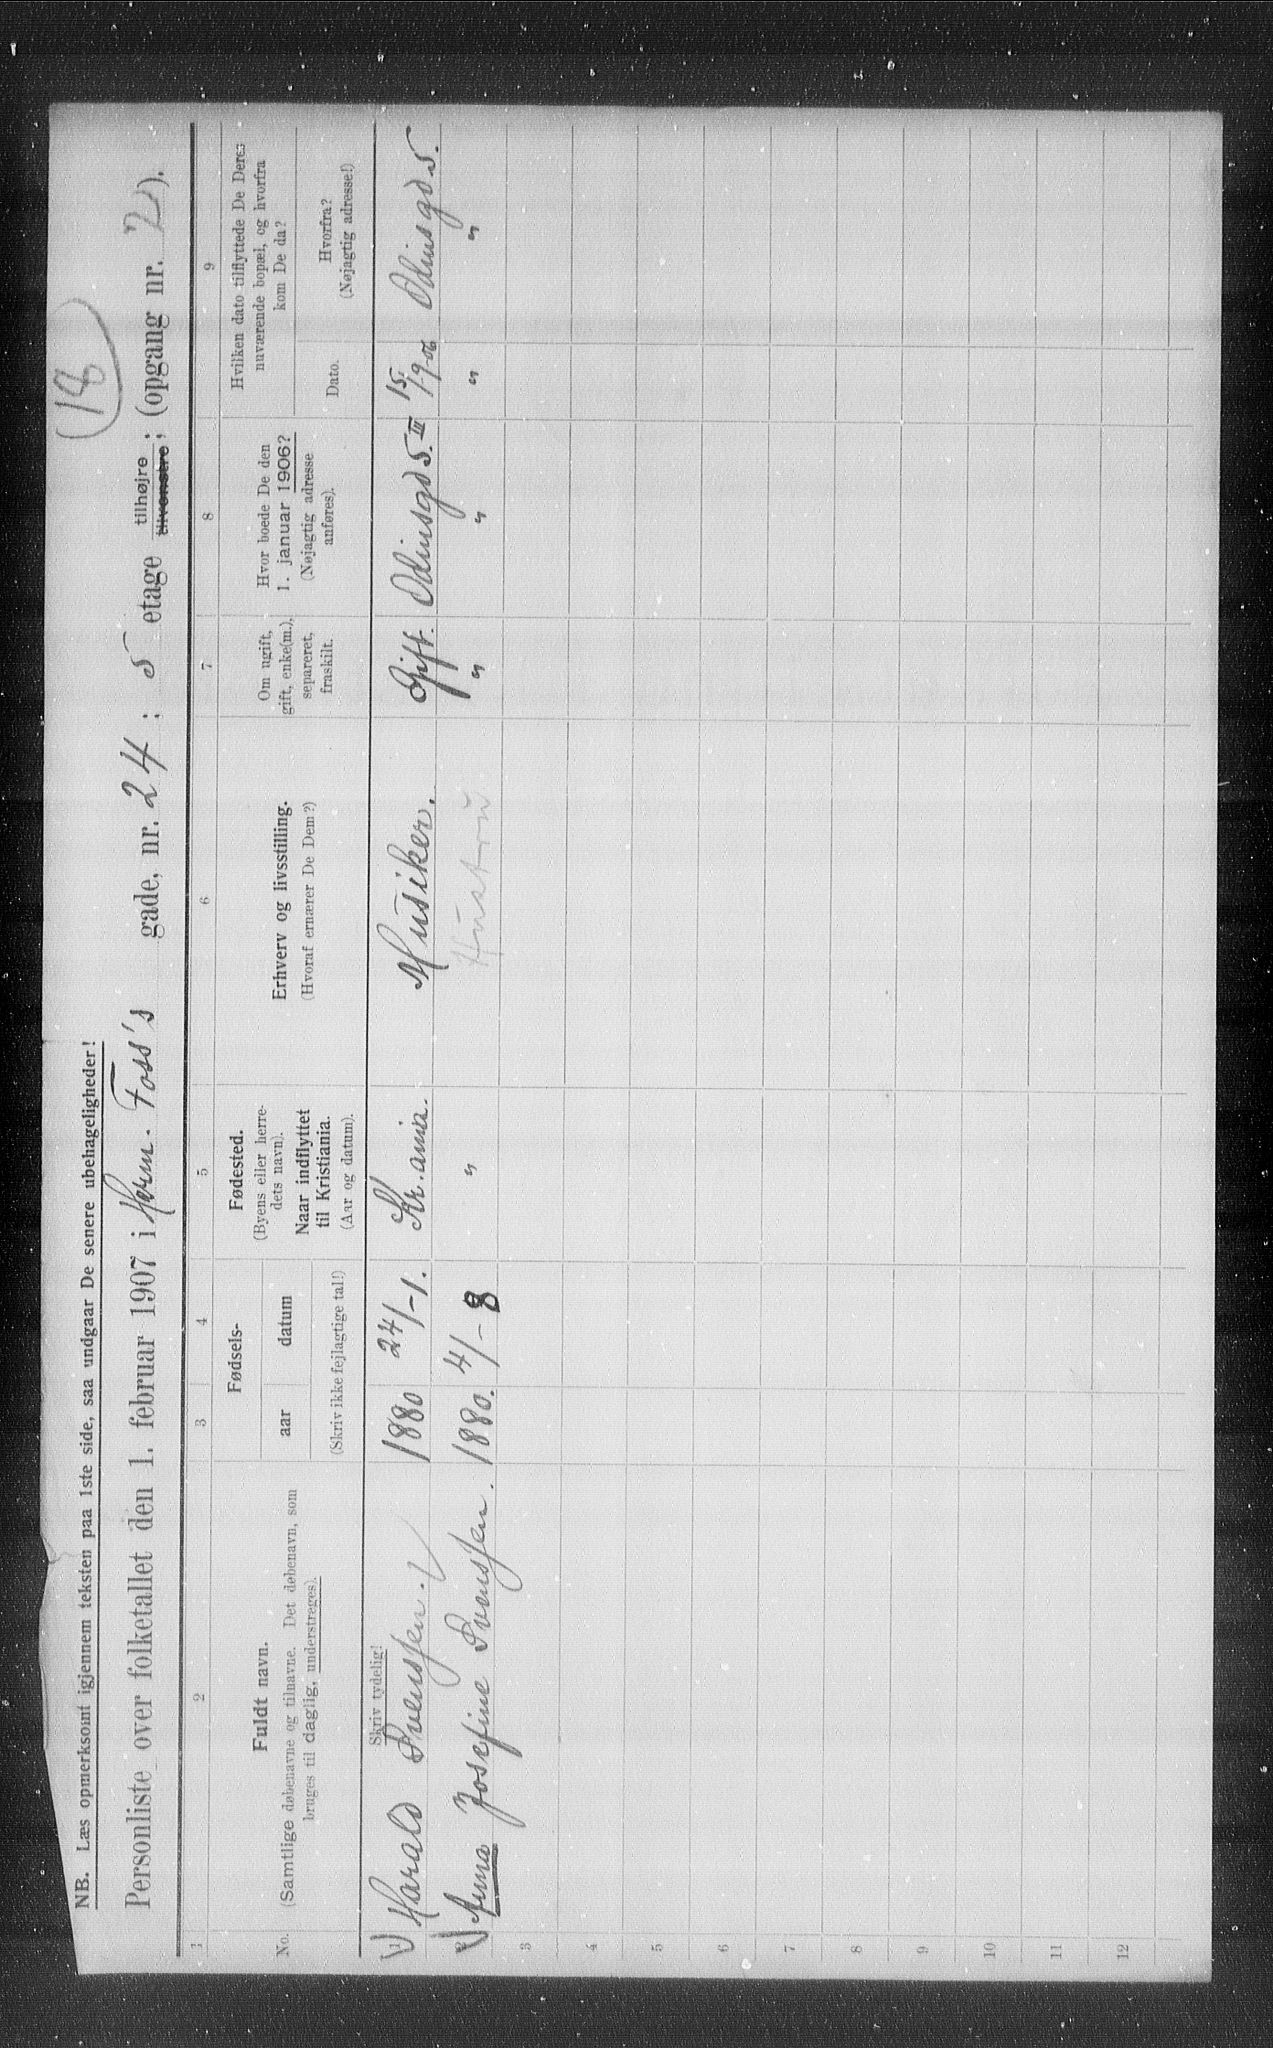 (18)
NB. Læs opmerksomt igjennem teksten paa 1ste side, saa undgaar De senere ubehageligheder!
Personliste over folketallet den 1. februar 1907 i Herm. Foss's gade, nr. 24 ; 5 etage tilhøjre tilvenstre ; (opgang nr. 2).
1 2 3 4 5 6 7 8 9
No.
Fuldt navn.
(Samtlige døbenavne og tilnavne. Det døbenavn, som
bruges til daglig, understreges).
Fødsels-
aar datum
(Skriv ikke fejlagtige tal!)
Fødested.
(Byens eller herre-
dets navn).
Naar indflyttet
til Kristiania.
(Aar og datum).
Erhverv og livsstilling.
(Hvoraf ernærer De Dem?)
Om ugift,
gift, enke(m.),
separeret,
fraskilt.
Hvor boede De den
1. januar 1906?
(Nøjagtig adresse
anføres).
Hvilken dato tilflyttede De Deres
nuværende bopæl, og hvorfra
kom De da?
Dato.
Hvorfra?
(Nøjagtig adresse!)
Skriv tydelig!
1 Harald Svenssen. 1880 24/-1. Kr.ania. Musiker. Gift. Odinsgd 5. III 15/9 06 Odinsgd 5.
2 Anna Josefine Svenssen. 1880. 4/-8 " Hustru " " " "
3
4
5
6
7
8
9
10
11
12